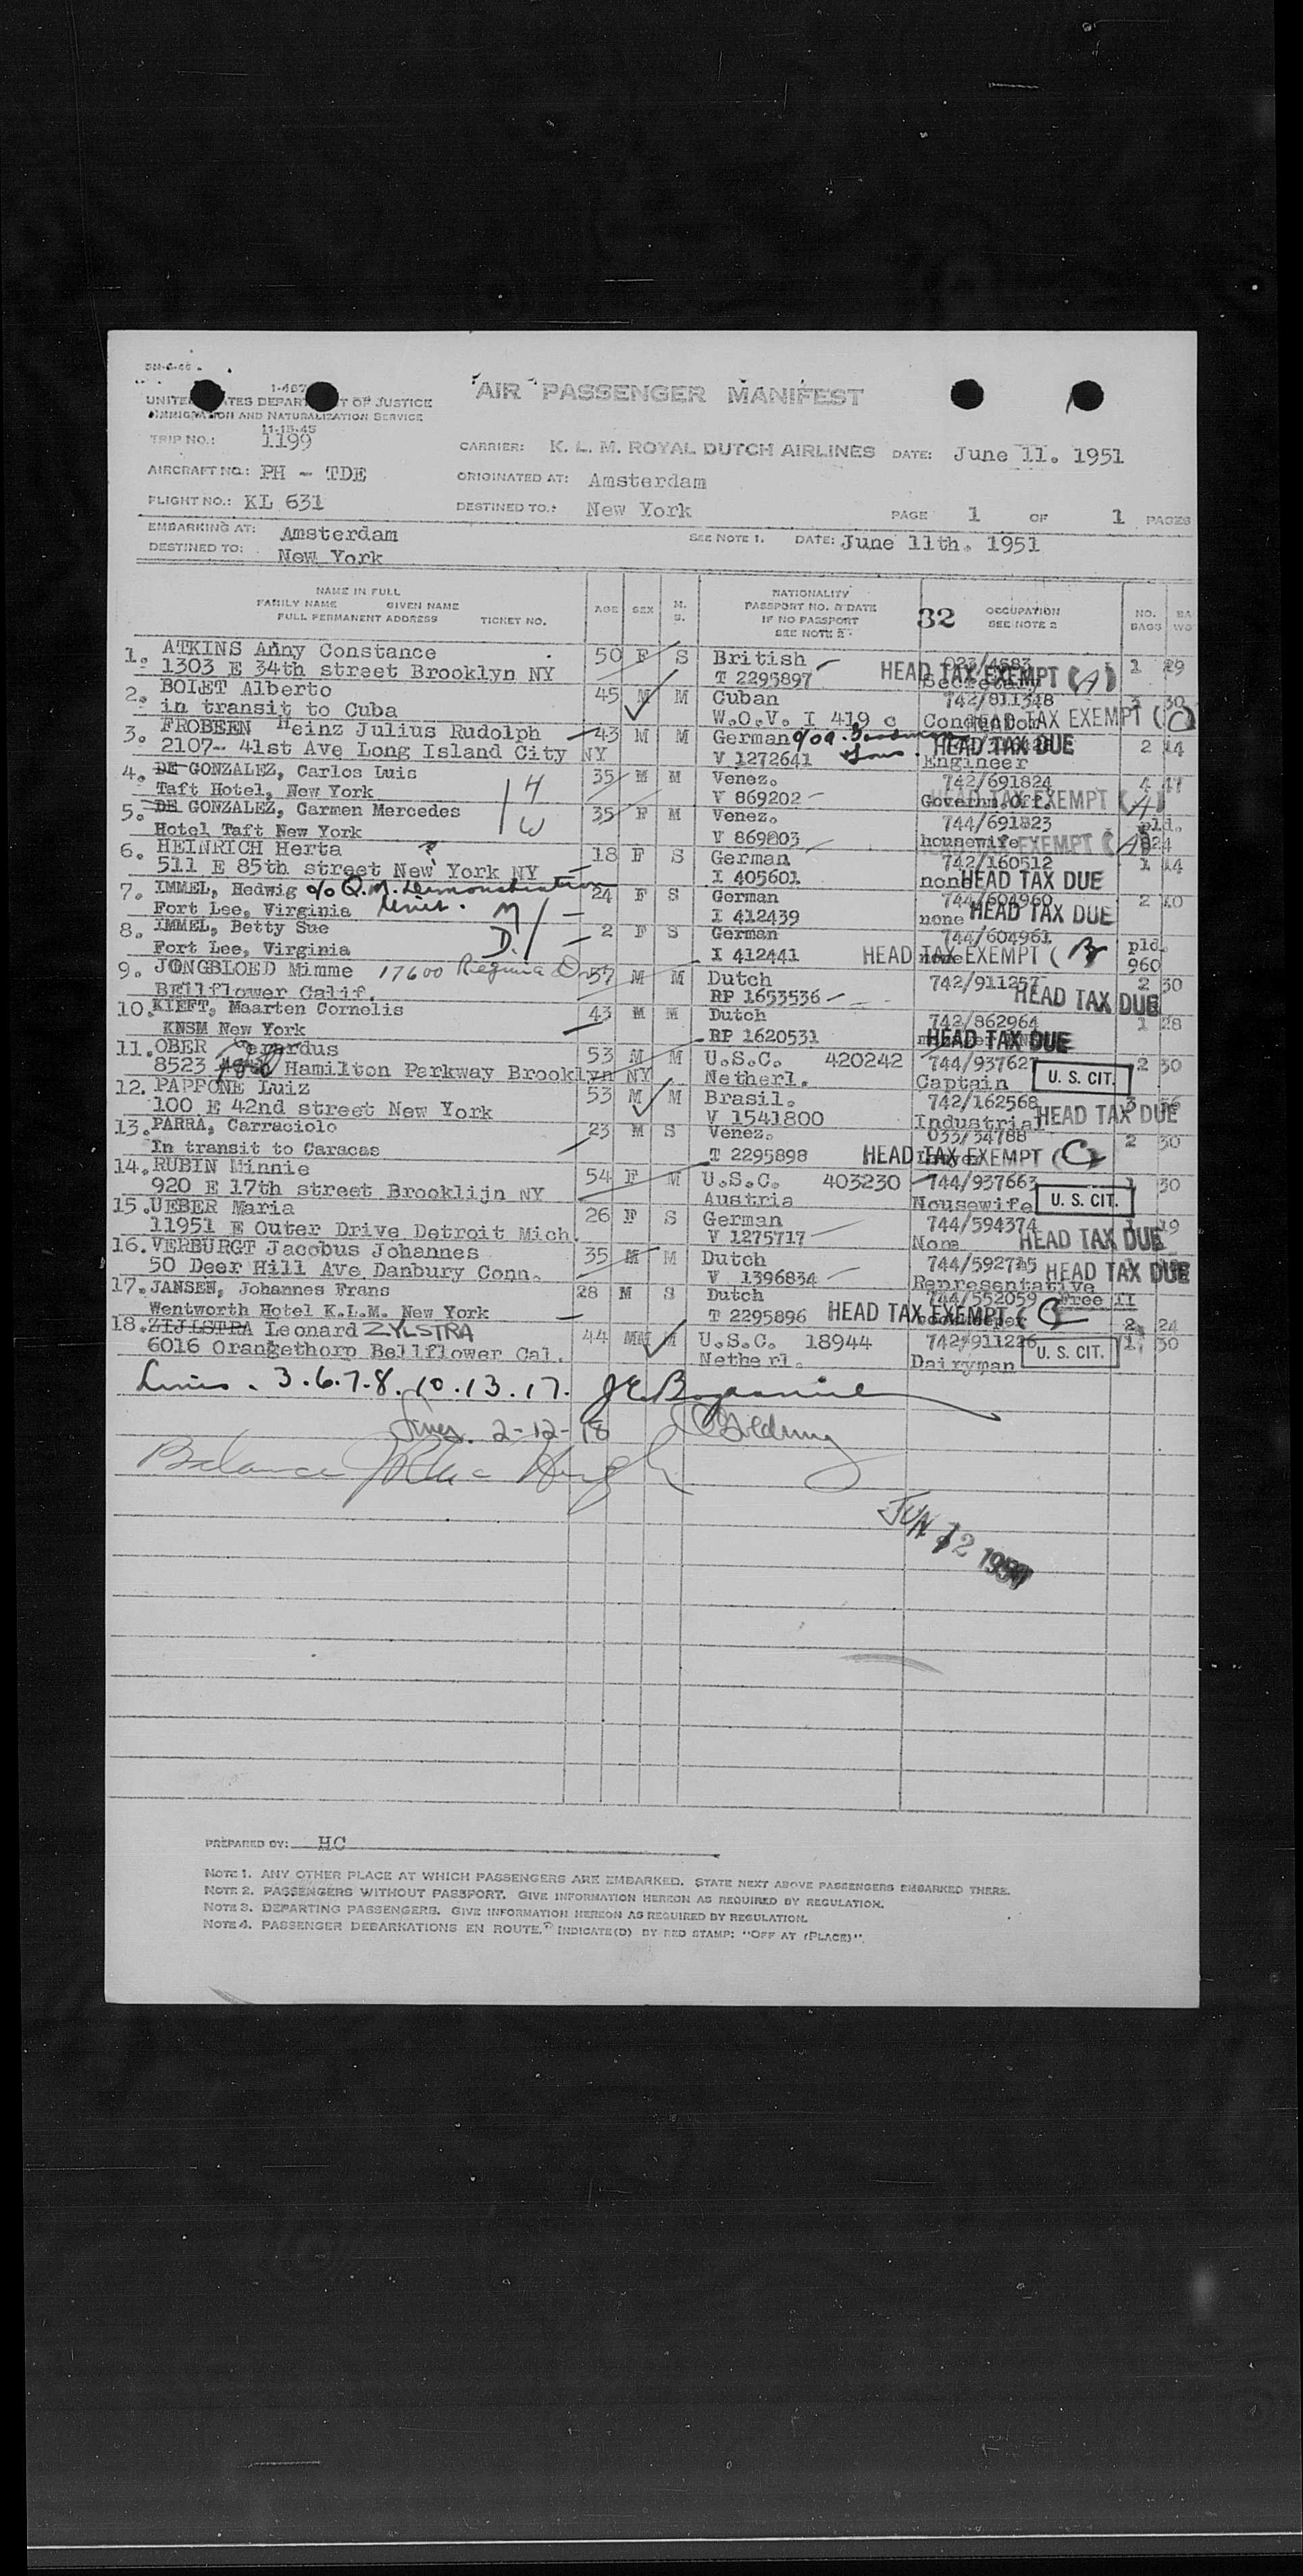 1-467
UNITED STATES DEPARTMENT OF JUSTICE
IMMIGRATION AND NATURALIZATION SERVICE
11-15-45
AIR PASSENGER MANIFEST
TRIP NO.: 1199
CARRIER: K. L. M. ROYAL DUTCH AIRLINES DATE: June 11. 1951
AIRCRAFT NO.: PH - TDE
ORIGINATED AT: Amsterdam
FLIGHT NO.: KL 631
DESTINED TO.: New York
PAGE 1 OF 1 PAGES
EMBARKING AT: Amsterdam
SEE NOTE 1. DATE: June 11th. 1951
DESTINED TO: New York
NAME IN FULL
FAMILY NAME GIVEN NAME
FULL PERMANENT ADDRESS TICKET NO.
AGE SEX M. S.
NATIONALITY
PASSPORT NO. & DATE
IF NO PASSPORT
SEE NOTE 2
32 OCCUPATION
SEE NOTE 2
NO. BAGS
BA WG
1. ATKINS Anny Constance 50 F S British 023/4683 1 29
1303 E 34th street Brooklyn NY T 2295897 Secretary HEAD TAX EXEMPT (A)
2. BOLET Alberto 45 M M Cuban 742/811348 30
in transit to Cuba W.O.V. I 419 c Conductor HEAD TAX EXEMPT (C)
3. FROBEEN Heinz Julius Rudolph 43 M M German HEAD TAX DUE 2 14
2107- 41st Ave Long Island City NY V 1272641 Engineer
4. DE GONZALEZ, Carlos Luis 35 M M Venez. 742/691824 4 47
Taft Hotel, New York H V 869202 Governm.Off. HEAD TAX EXEMPT (A)
5. DE GONZALEZ, Carmen Mercedes 35 F M Venez. 744/691823 pld.
Hotel Taft New York W V 869803 housewife HEAD TAX EXEMPT (A) 824
6. HEINRICH Herta ? 18 F S German 742/160512 1 14
511 E 85th street New York NY I 405601 none HEAD TAX DUE
7. IMMEL, Hedwig c/o Q.M. Demonstration 24 F S German 744/604960 2 40
Fort Lee, Virginia Unit. M I 412439 none HEAD TAX DUE
8. IMMEL, Betty Sue D. 2 F S German 744/604961 pld.
Fort Lee, Virginia I 412441 none HEAD TAX EXEMPT (B 960
9. JONGBLOED Mimme 17600 Regina 57 M M Dutch 742/911257 2 30
Bellflower Calif. RP 1653536 HEAD TAX DUE
10. KIEFT, Maarten Cornelis 43 M M Dutch 742/862964 1 28
KNSM New York RP 1620531 HEAD TAX DUE
11. OBER Gerardus 53 M M U.S.C. 420242 744/937627 2 30
8523 Hamilton Parkway Brooklyn NY Netherl. Captain U. S. CIT.
12. PAPPONE Luiz 53 M M Brasil. 742/162568 3
100 E 42nd street New York V 1541800 Industrial HEAD TAX DUE
13. PARRA, Carraciolo 23 M S Venez. 033/34788 2 30
In transit to Caracas T 2295898 HEAD TAX EXEMPT (C)
14. RUBIN Minnie 54 F M U.S.C. 403230 744/937663 1 30
920 E 17th street Brooklijn NY Austria Housewife U. S. CIT.
15. UEBER Maria 26 F S German 744/594374 1 19
11951 E Outer Drive Detroit Mich. V 1275717 None HEAD TAX DUE
16. VERBURGT Jacobus Johannes 35 M M Dutch
50 Deer Hill Ave Danbury Conn. V 1396834 Representative HEAD TAX DUE
17. JANSEN, Johannes Frans 28 M S Dutch 744/552059 Free II
Wentworth Hotel K.L.M. New York T 2295896 HEAD TAX EXEMPT (C 2 24
18. ZIJLSTRA Leonard ZYLSTRA 44 M M U.S.C. 18944 742/911226 1 30
6016 Orangethorp Bellflower Cal. Netherl. Dairyman U. S. CIT.
Lines. 3.6.7.8.10.13.17.
Lines. 2-12-18
Balance
JUN 12 1951
PREPARED BY: HC
NOTE 1. ANY OTHER PLACE AT WHICH PASSENGERS ARE EMBARKED. STATE NEXT ABOVE PASSENGERS EMBARKED THERE.
NOTE 2. PASSENGERS WITHOUT PASSPORT. GIVE INFORMATION HEREON AS REQUIRED BY REGULATION.
NOTE 3. DEPARTING PASSENGERS. GIVE INFORMATION HEREON AS REQUIRED BY REGULATION.
NOTE 4. PASSENGER DEBARKATIONS EN ROUTE. INDICATE (D) BY RED STAMP: "OFF AT (PLACE)".